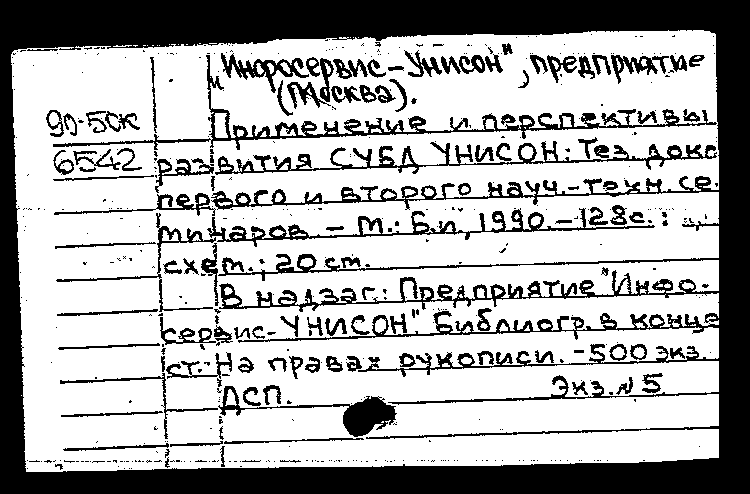 „Инфросервис-Унисон", предприятие
(Москва).
90-50к
Применение и перспективы
6542 развития СУБД УНИСОН: Тез. докл
первого и второго науч.-техн. се-
минаров. – М.: Б.и, 1990. – 128с. :
схем.; 20 см.
В надзаг.: Предприятие "Инфо-
сервис-УНИСОН". Библиогр. в конце
ст. - На правах рукописи. - 500 экз.
ДСП. Экз. № 5